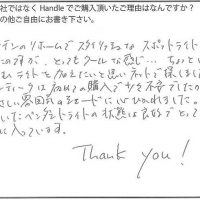 社ではなく Handle でご購入頂いたご理由はなんですか?
の他ご自由にお書き下さい。
テンのリホームでスタイリッシュな スポットライト
ですが、とってもクールな感じ… ちょっと
ライトを加えたいと思いネットで探しました
ティークは初めての購入で少々不安でしたが
しい雰囲気のムードに心ひかれました。
いたペンダントライトの状態は良好でとて
に入っています。
Thank you!